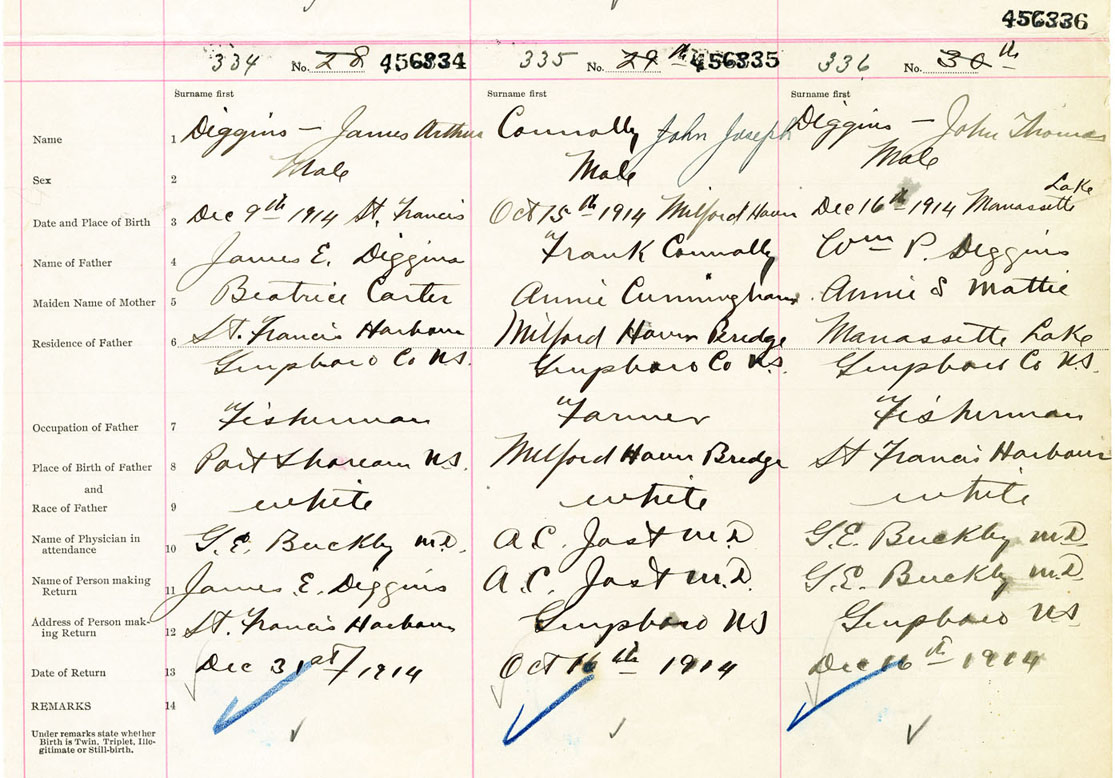 456336
334 No. 28 456334 335 No. 29th 456335 336 No. 30th
Surname first Surname first Surname first
Name 1 Diggins – James Arthur Connolly John Joseph Diggins – John Thomas
Sex 2 Male Male Male
Lake
Date and Place of Birth 3 Dec 9th 1914 St. Francis Oct 15th 1914 Milford Haven Dec 16th 1914 Manassette
Name of Father 4 James E. Diggins Frank Connolly Wm P. Diggins
Maiden Name of Mother 5 Beatrice Carter Annie Cunningham Annie S Mattie
Residence of Father 6 St. Francis Harbour Milford Haven Bridge Manassette Lake
Guysboro Co NS. Guysboro Co NS. Guysboro Co NS.
Occupation of Father 7 Fisherman Farmer Fisherman
Place of Birth of Father 8 Port Shoream NS. Milford Haven Bridge St Francis Harbour
and
Race of Father 9 white white white
Name of Physician in
attendance 10 G.E. Buckley M.D. A.C. Jost M.D G.E. Buckley M.D.
Name of Person making
Return 11 James E. Diggins A.C. Jost M.D. G.E. Buckley M.D.
Address of Person mak-
ing Return 12 St. Francis Harbour Guysboro NS Guysboro NS
Date of Return 13 Dec 31st / 1914 Oct 16th 1914 Dec 16th 1914
REMARKS 14
Under remarks state whether
Birth is Twin, Triplet, Ille-
gitimate or Still-birth.